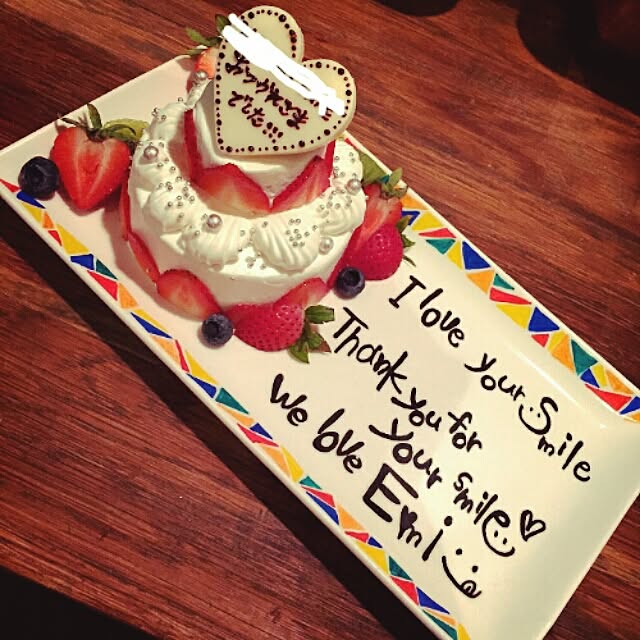 おつかれさま
でした!!!
I love your Smile
Thank you for
your smile♡
We love Emi